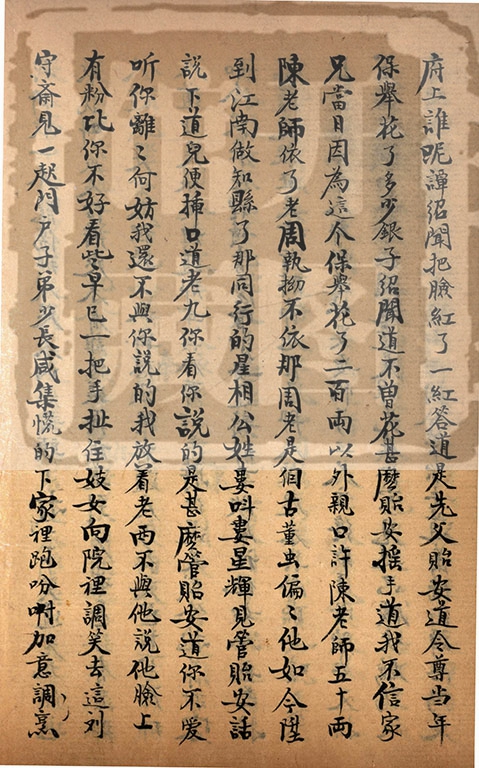 府上誰呢譚紹聞把臉紅了一紅答道是先父貽安道令尊当年
保舉花了多少銀子紹聞道不曾花甚麼貽安搖手道我不信家
兄當日因為這个保舉花了二百両以外親口許陳老師五十両
陳老師依了老周執拗不依那周老是個古董虫偏〻他如今陞
到江南做知縣了那同行的星相公姓婁呌婁星輝見管貽安話
說下道兒便揷口道老九你看你說的是甚麽管貽安道你不愛
听你離〻何妨我還不與你說的我放着老両不與他說他臉上
有粉比你不好看些早已一把手扯住妓女向院裡調笑去這刘
守斋見一起門户子弟少長咸集慌的下家裡跑吩咐加意調烹